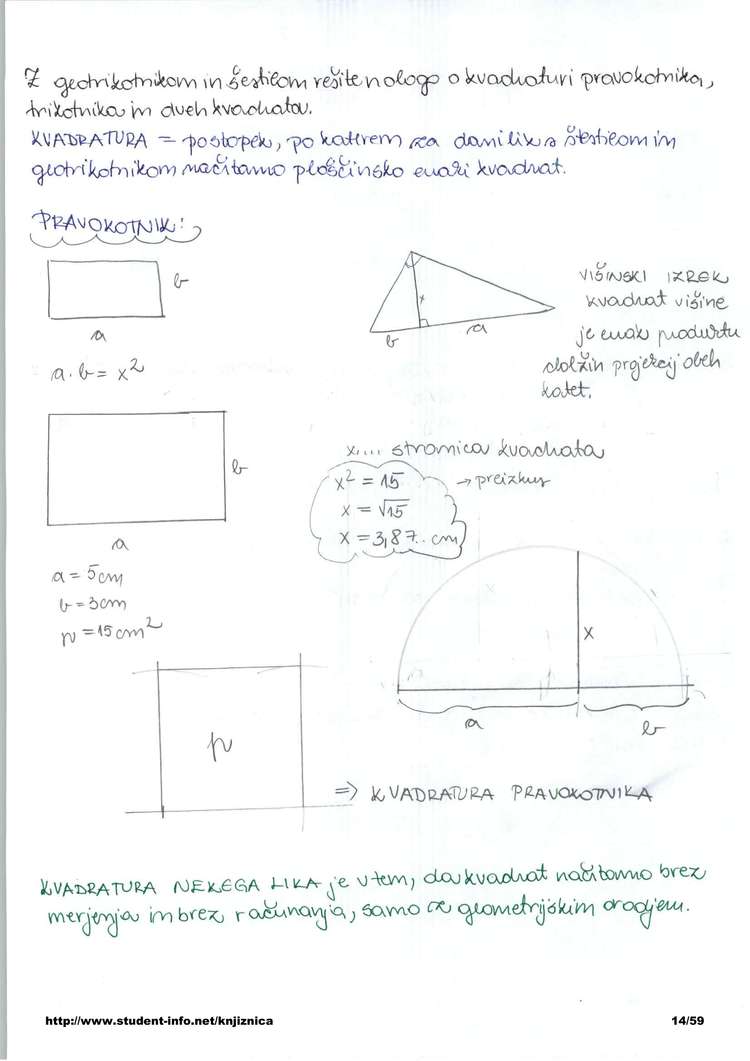 Z geotrikotnikom in šestilom rešite nalogo o kvadraturi pravokotnika,
trikotnika in dveh kvadratov.
KVADRATURA = postopek, po katerem za dani lik s šestilom in
geotrikotnikom načrtamo ploščinsko enaki kvadrat.
PRAVOKOTNIK:
b
a
a · b = x²
x
b
a
VIŠINSKI IZREK
kvadrat višine
je enak produktu
dolžin projekcij obeh
katet.
b
a
a = 5cm
b = 3cm
p = 15 cm²
x.... stranica kvadrata
x² = 15
→ preizkus
x = √15
x = 3,87.. cm
x
a
b
p
=> KVADRATURA PRAVOKOTNIKA
KVADRATURA NEKEGA LIKA je v tem, da kvadrat načrtamo brez
merjenja in brez računanja, samo z geometrijskim orodjem.
http://www.student-info.net/knjiznica
14/59